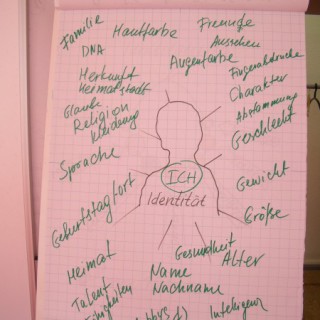 Familie
Hautfarbe
Freunde
DNA
Aussehen
Augenfarbe
Fingerabdrücke
Herkunft
Heimatstadt
Charakter
Glaube
Religion
Kleidung
Abstammung
Geschlecht
Sprache
ICH
Identität
Gewicht
Geburtstag/ort
Größe
Heimat
Gesundheit
Alter
Name
Nachname
Talent
Intelligenz